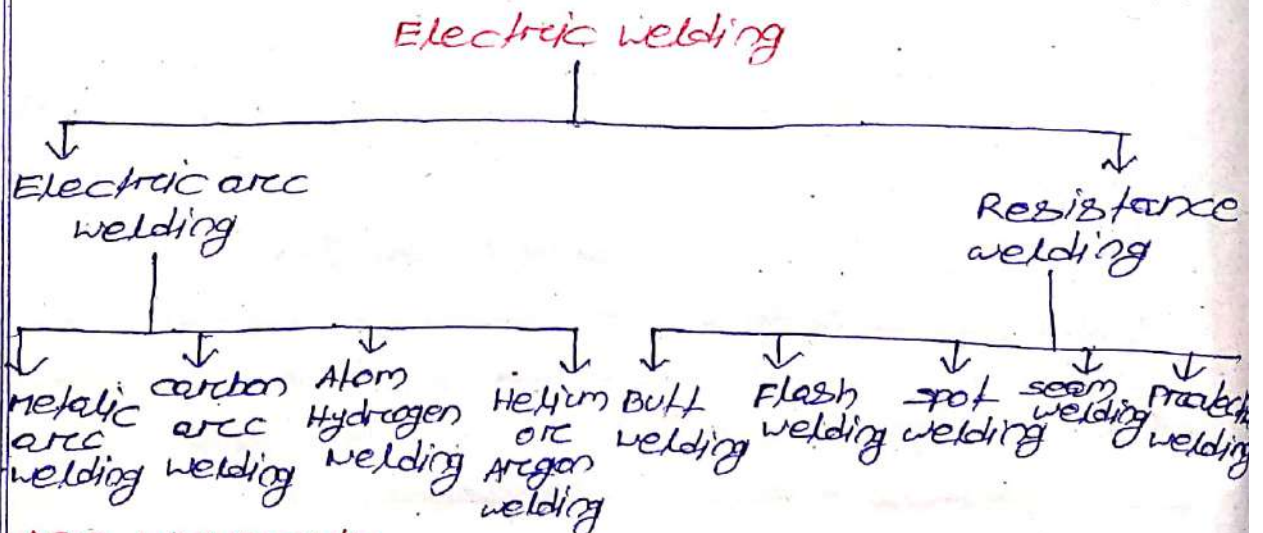 Electric welding
Electric arc
welding
Resistance
welding
Metalic
arc
welding
carbon
arc
welding
Atom
Hydrogen
welding
Helium
or
Argon
welding
Butt
welding
Flash
welding
spot
welding
seam
welding
welding